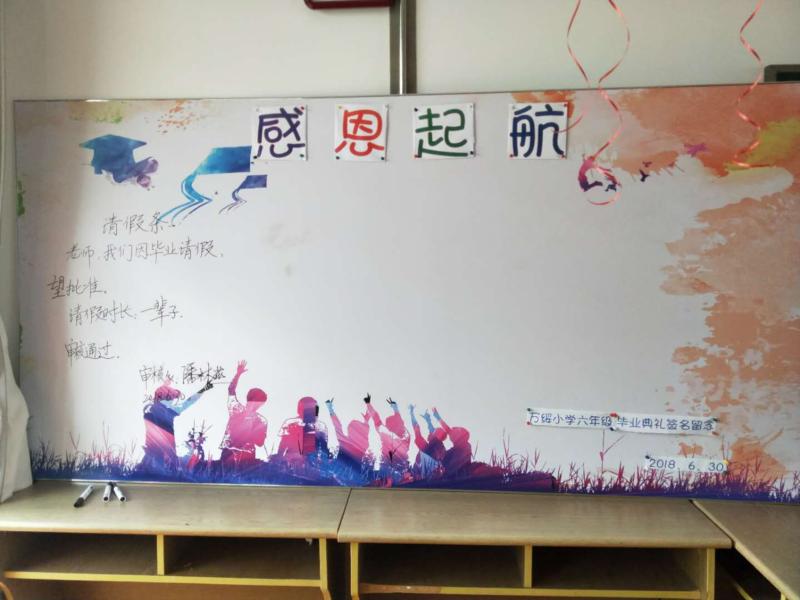 感恩起航
请假条
老师,我们因毕业请假,
望批准。
请假时长:一辈子.
审核通过.
审核人:
万绥小学六年级 毕业典礼签名留念
2018.6.30